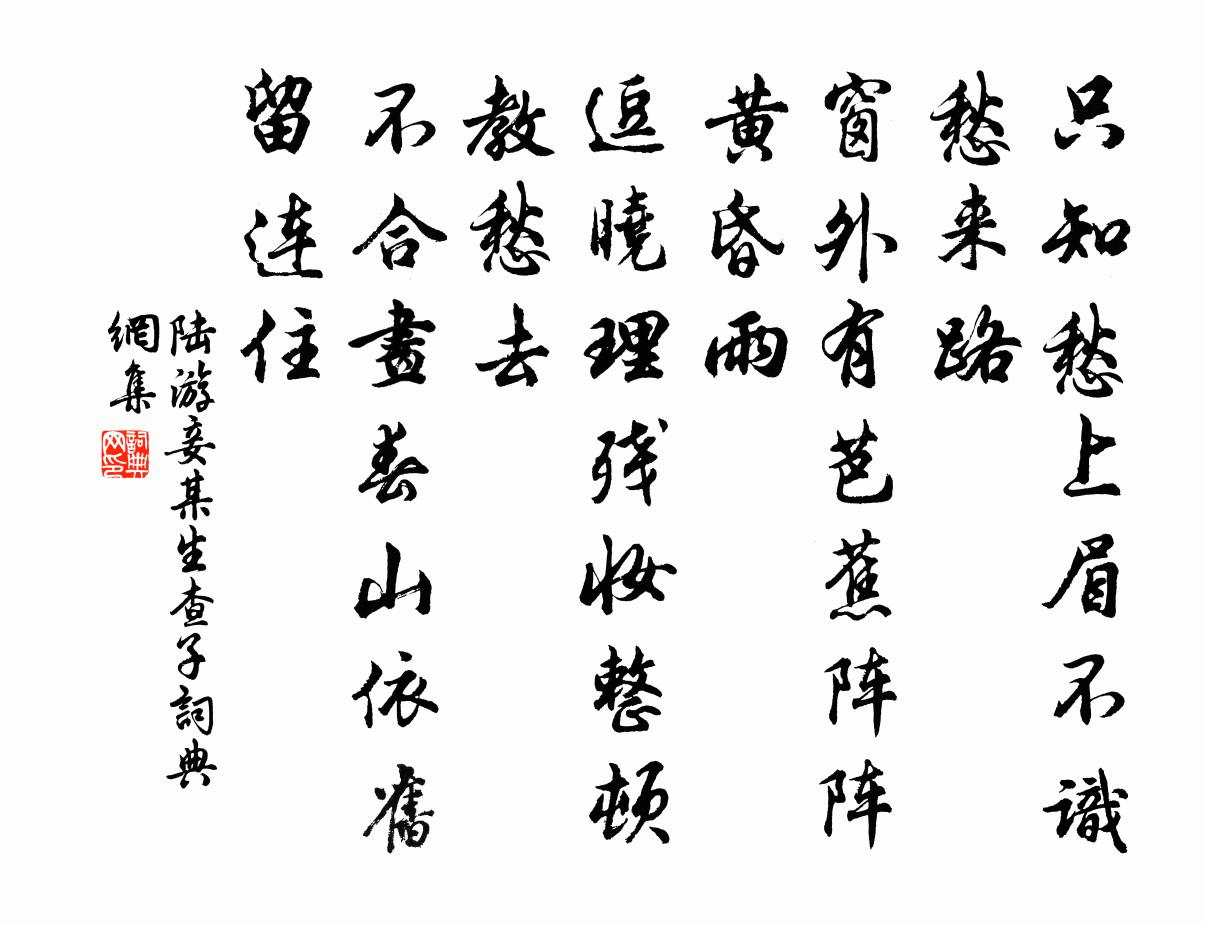 只知愁上眉不識
愁来路
窗外有芭蕉阵阵
黄昏雨
逗曉理残妆整頓
教愁去
不合畫春山依舊
留连住
陆游妾某生查子詞典
網集
詞典
网印